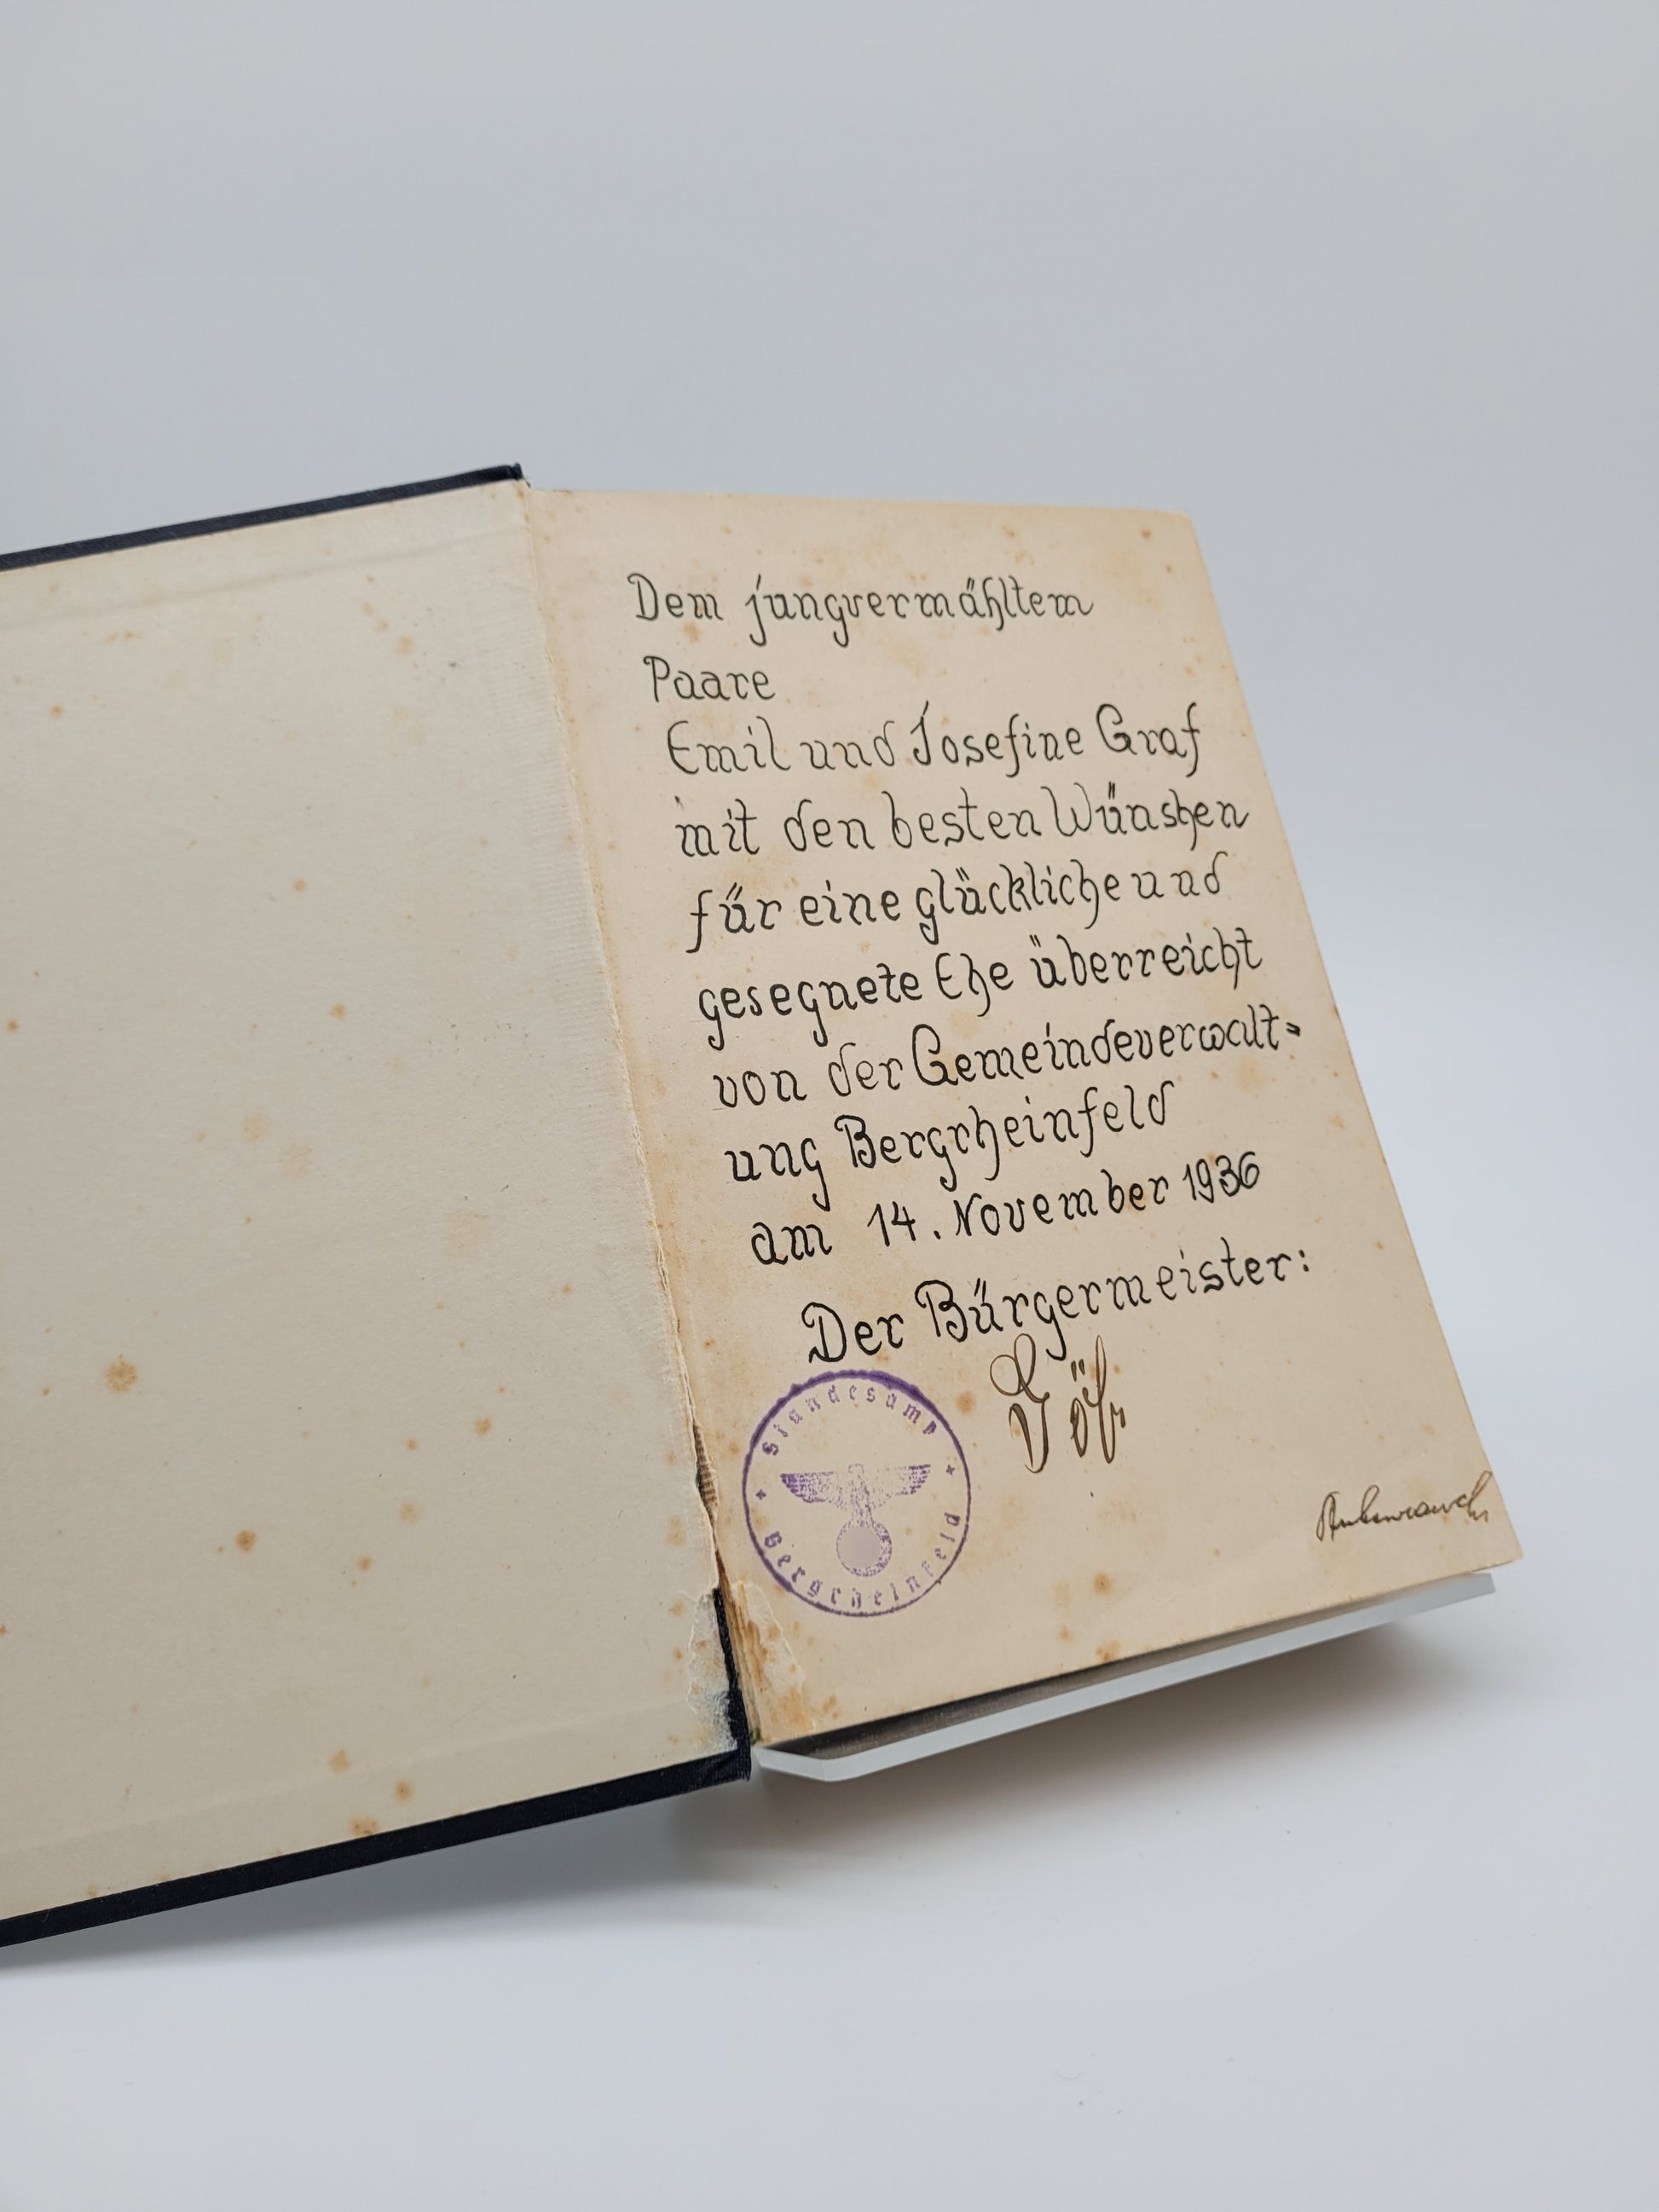 Dem jungvermähltem
Paare
Emil und Josefine Graf
mit den besten Wünschen
für eine glückliche und
gesegnete Ehe überreicht
von der Gemeindeverwalt=
ung Bergrheinfeld
am 14. November 1936
Der Bürgermeister:
Standesamt
Bergrheinfeld